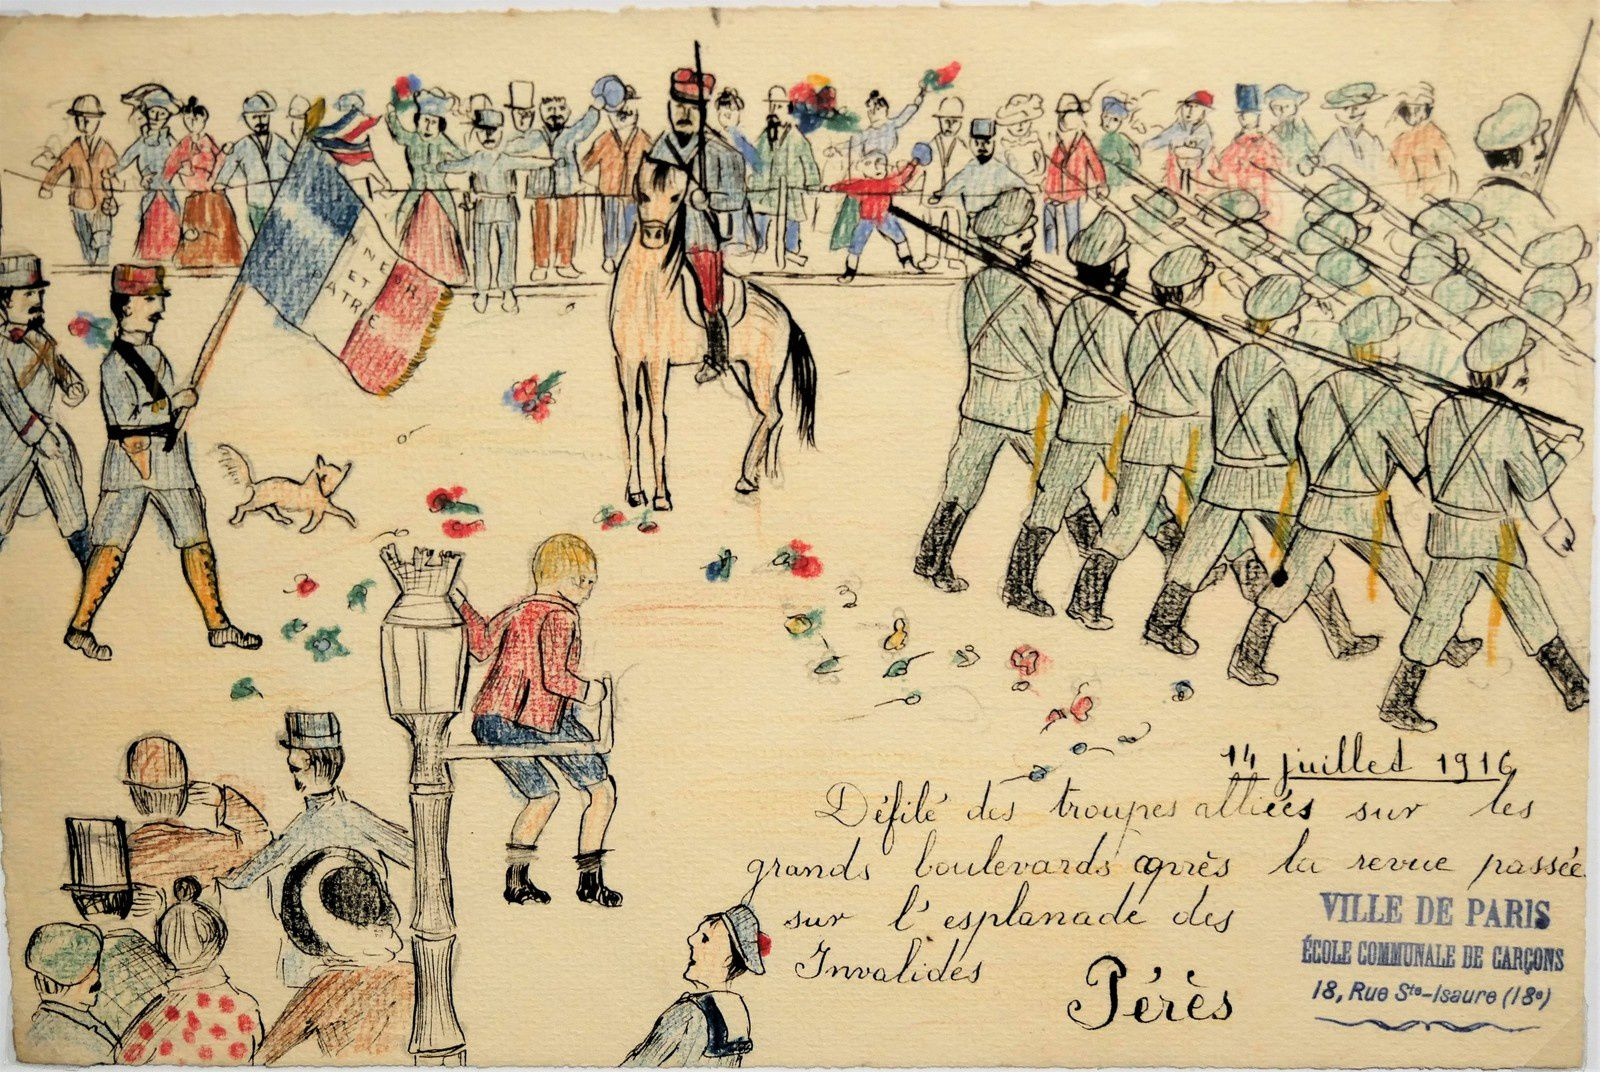 NNEUR
ET
PATRE
14 juillet 1916
Défilé des troupes alliées sur les
grands boulevards après la revue passée
sur l'esplanade des
Invalides
Pérès
VILLE DE PARIS
ÉCOLE COMMUNALE DE GARÇONS
18, Rue Ste-Isaure (18e)